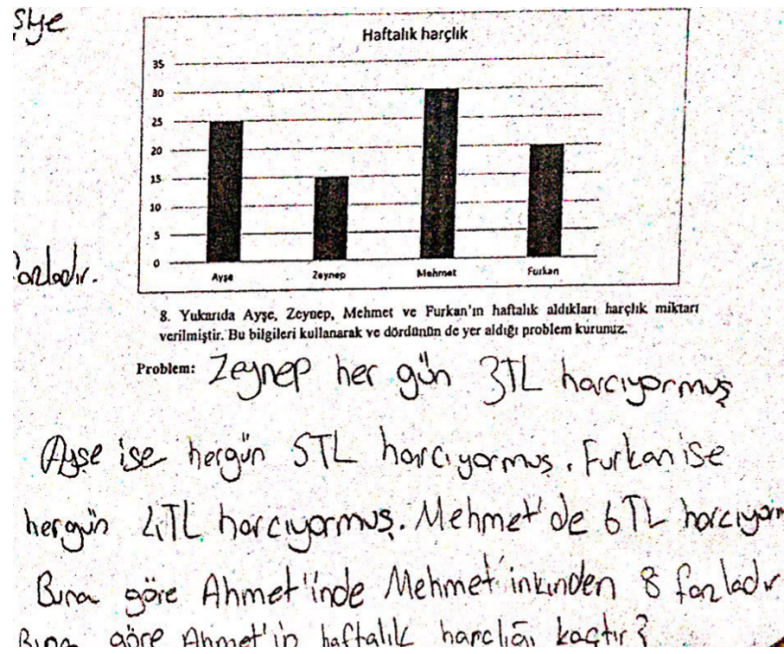 şye
Haftalık harçlık
35
30
25
20
15
10
5
0
Ayşe Zeynep Mehmet Furkan
fazladır.
8. Yukarıda Ayşe, Zeynep, Mehmet ve Furkan'ın haftalık aldıkları harçlık miktarı
verilmiştir. Bu bilgileri kullanarak ve dördünün de yer aldığı problem kurunuz.
Problem: Zeynep her gün 3TL harcıyormuş
Ayşe ise hergün 5TL harcıyormuş. Furkan ise
hergün 4TL harcıyormuş. Mehmet'de 6TL harcıyorm
Buna göre Ahmet'inde Mehmet'inkinden 8 fazladır
Buna göre Ahmet'in haftalık harçlığı kaçtır?